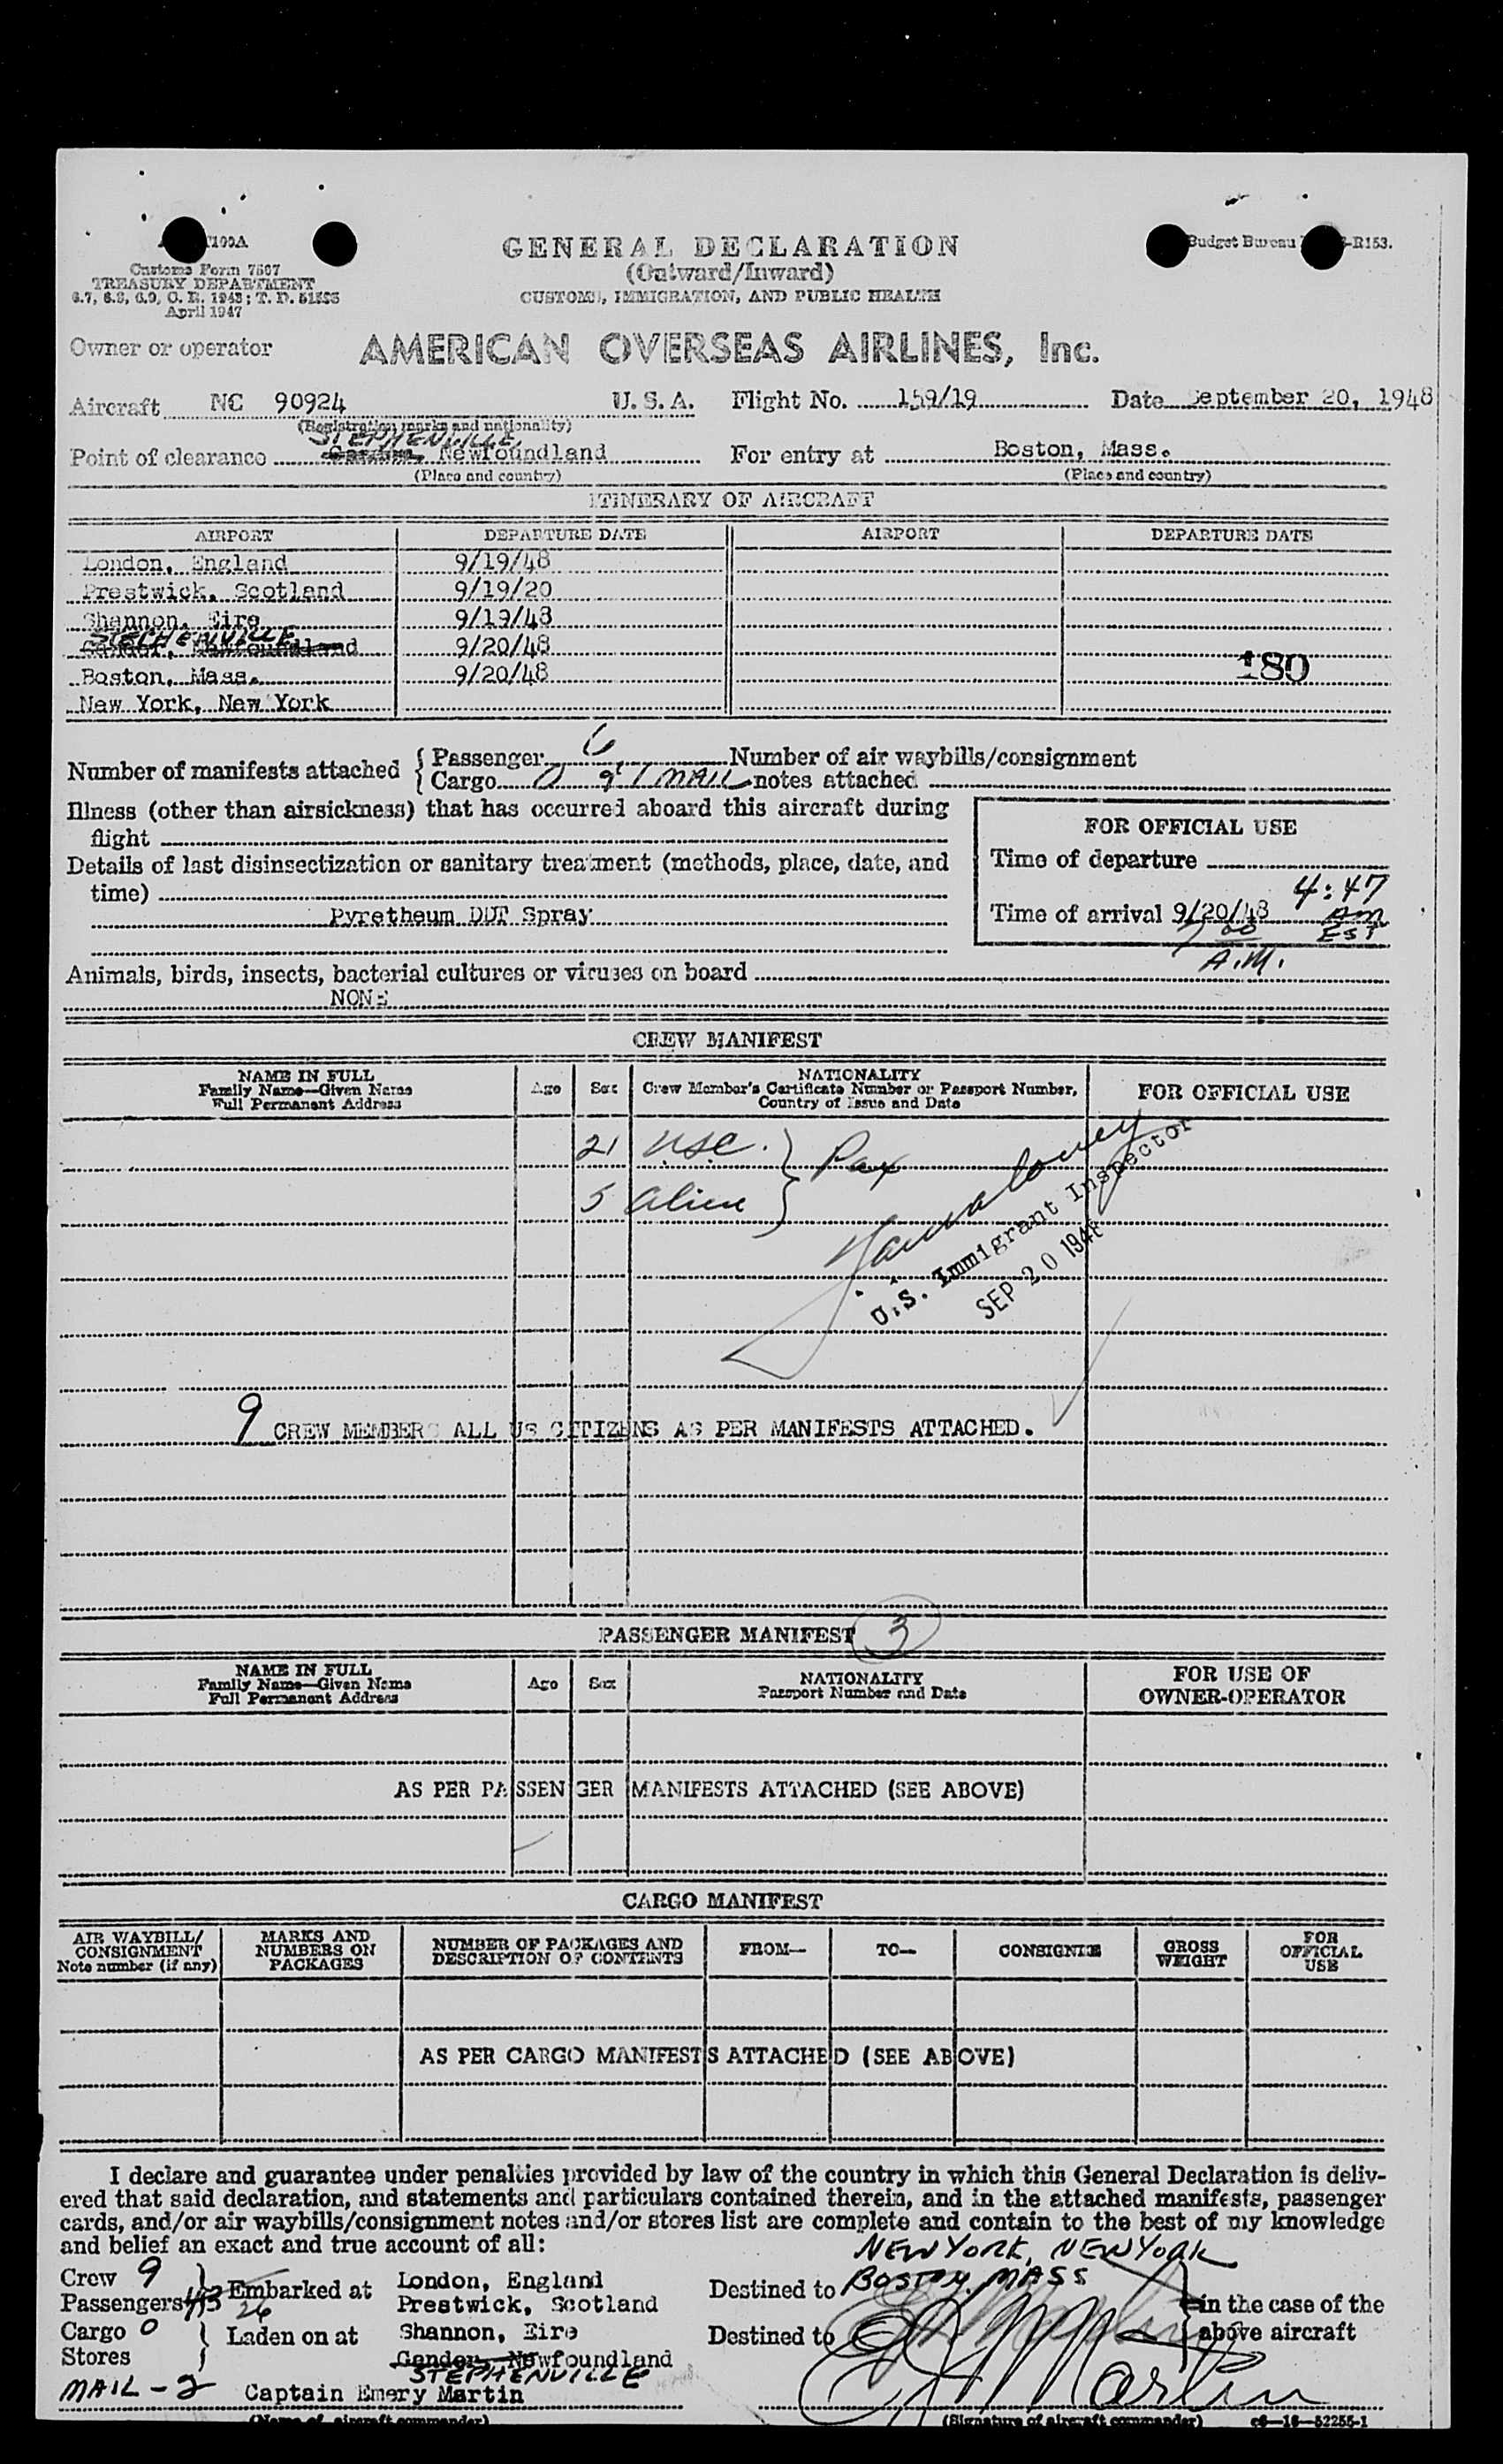 100A
Customs Form 7507
TREASURY DEPARTMENT
April 1947
Budget Bureau -R153.
GENERAL DECLARATION
(Outward/Inward)
CUSTOMS, IMMIGRATION, AND PUBLIC HEALTH
Owner or operator AMERICAN OVERSEAS AIRLINES, Inc.
Aircraft NC 90924 U. S. A. Flight No. 159/19 Date September 20, 1948
(Registration marks and nationality)
STEPHENVILLE
Point of clearance Gander, Newfoundland For entry at Boston, Mass.
(Place and country) (Place and country)
ITINERARY OF AIRCRAFT
AIRPORT DEPARTURE DATE AIRPORT DEPARTURE DATE
London, England 9/19/48
Prestwick, Scotland 9/19/20
Shannon, Eire 9/19/48
STECHENVILLE
Gander, Newfoundland 9/20/48
Boston, Mass. 9/20/48 180
New York, New York
Number of manifests attached { Passenger 6 Number of air waybills/consignment
Cargo 0 MAIL notes attached
Illness (other than airsickness) that has occurred aboard this aircraft during
flight
Details of last disinsectization or sanitary treatment (methods, place, date, and
time)
Pyretheum DDT Spray
FOR OFFICIAL USE
Time of departure
4:47
Time of arrival 9/20/48 AM
EST
A.M.
Animals, birds, insects, bacterial cultures or viruses on board
NONE
CREW MANIFEST
NAME IN FULL
Family Name—Given Name
Full Permanent Address
Age Sex
NATIONALITY
Crew Member's Certificate Number or Passport Number,
Country of Issue and Date
FOR OFFICIAL USE
21 USC. } Pax
5 alien
U.S. Immigrant Inspector
SEP 20 1948
9 CREW MEMBERS ALL US CITIZENS AS PER MANIFESTS ATTACHED.
PASSENGER MANIFEST 3
NAME IN FULL
Family Name—Given Name
Full Permanent Address
Age Sex
NATIONALITY
Passport Number and Date
FOR USE OF
OWNER-OPERATOR
AS PER PASSENGER MANIFESTS ATTACHED (SEE ABOVE)
CARGO MANIFEST
AIR WAYBILL/
CONSIGNMENT
Note number (if any)
MARKS AND
NUMBERS ON
PACKAGES
NUMBER OF PACKAGES AND
DESCRIPTION OF CONTENTS
FROM— TO— CONSIGNEE
GROSS
WEIGHT
FOR
OFFICIAL
USE
AS PER CARGO MANIFESTS ATTACHED (SEE ABOVE)
I declare and guarantee under penalties provided by law of the country in which this General Declaration is deliv-
ered that said declaration, and statements and particulars contained therein, and in the attached manifests, passenger
cards, and/or air waybills/consignment notes and/or stores list are complete and contain to the best of my knowledge
and belief an exact and true account of all:
NEW YORK, NEW YORK
Crew 9
Passengers 26 Embarked at London, England Destined to BOSTON, MASS
Prestwick, Scotland in the case of the
Cargo 0 Laden on at Shannon, Eire Destined to above aircraft
Stores Gander, Newfoundland
STEPHENVILLE
MAIL - 2 Captain Emery Martin E Martin
(Name of aircraft commander) (Signature of aircraft commander) c6—16—52255-1